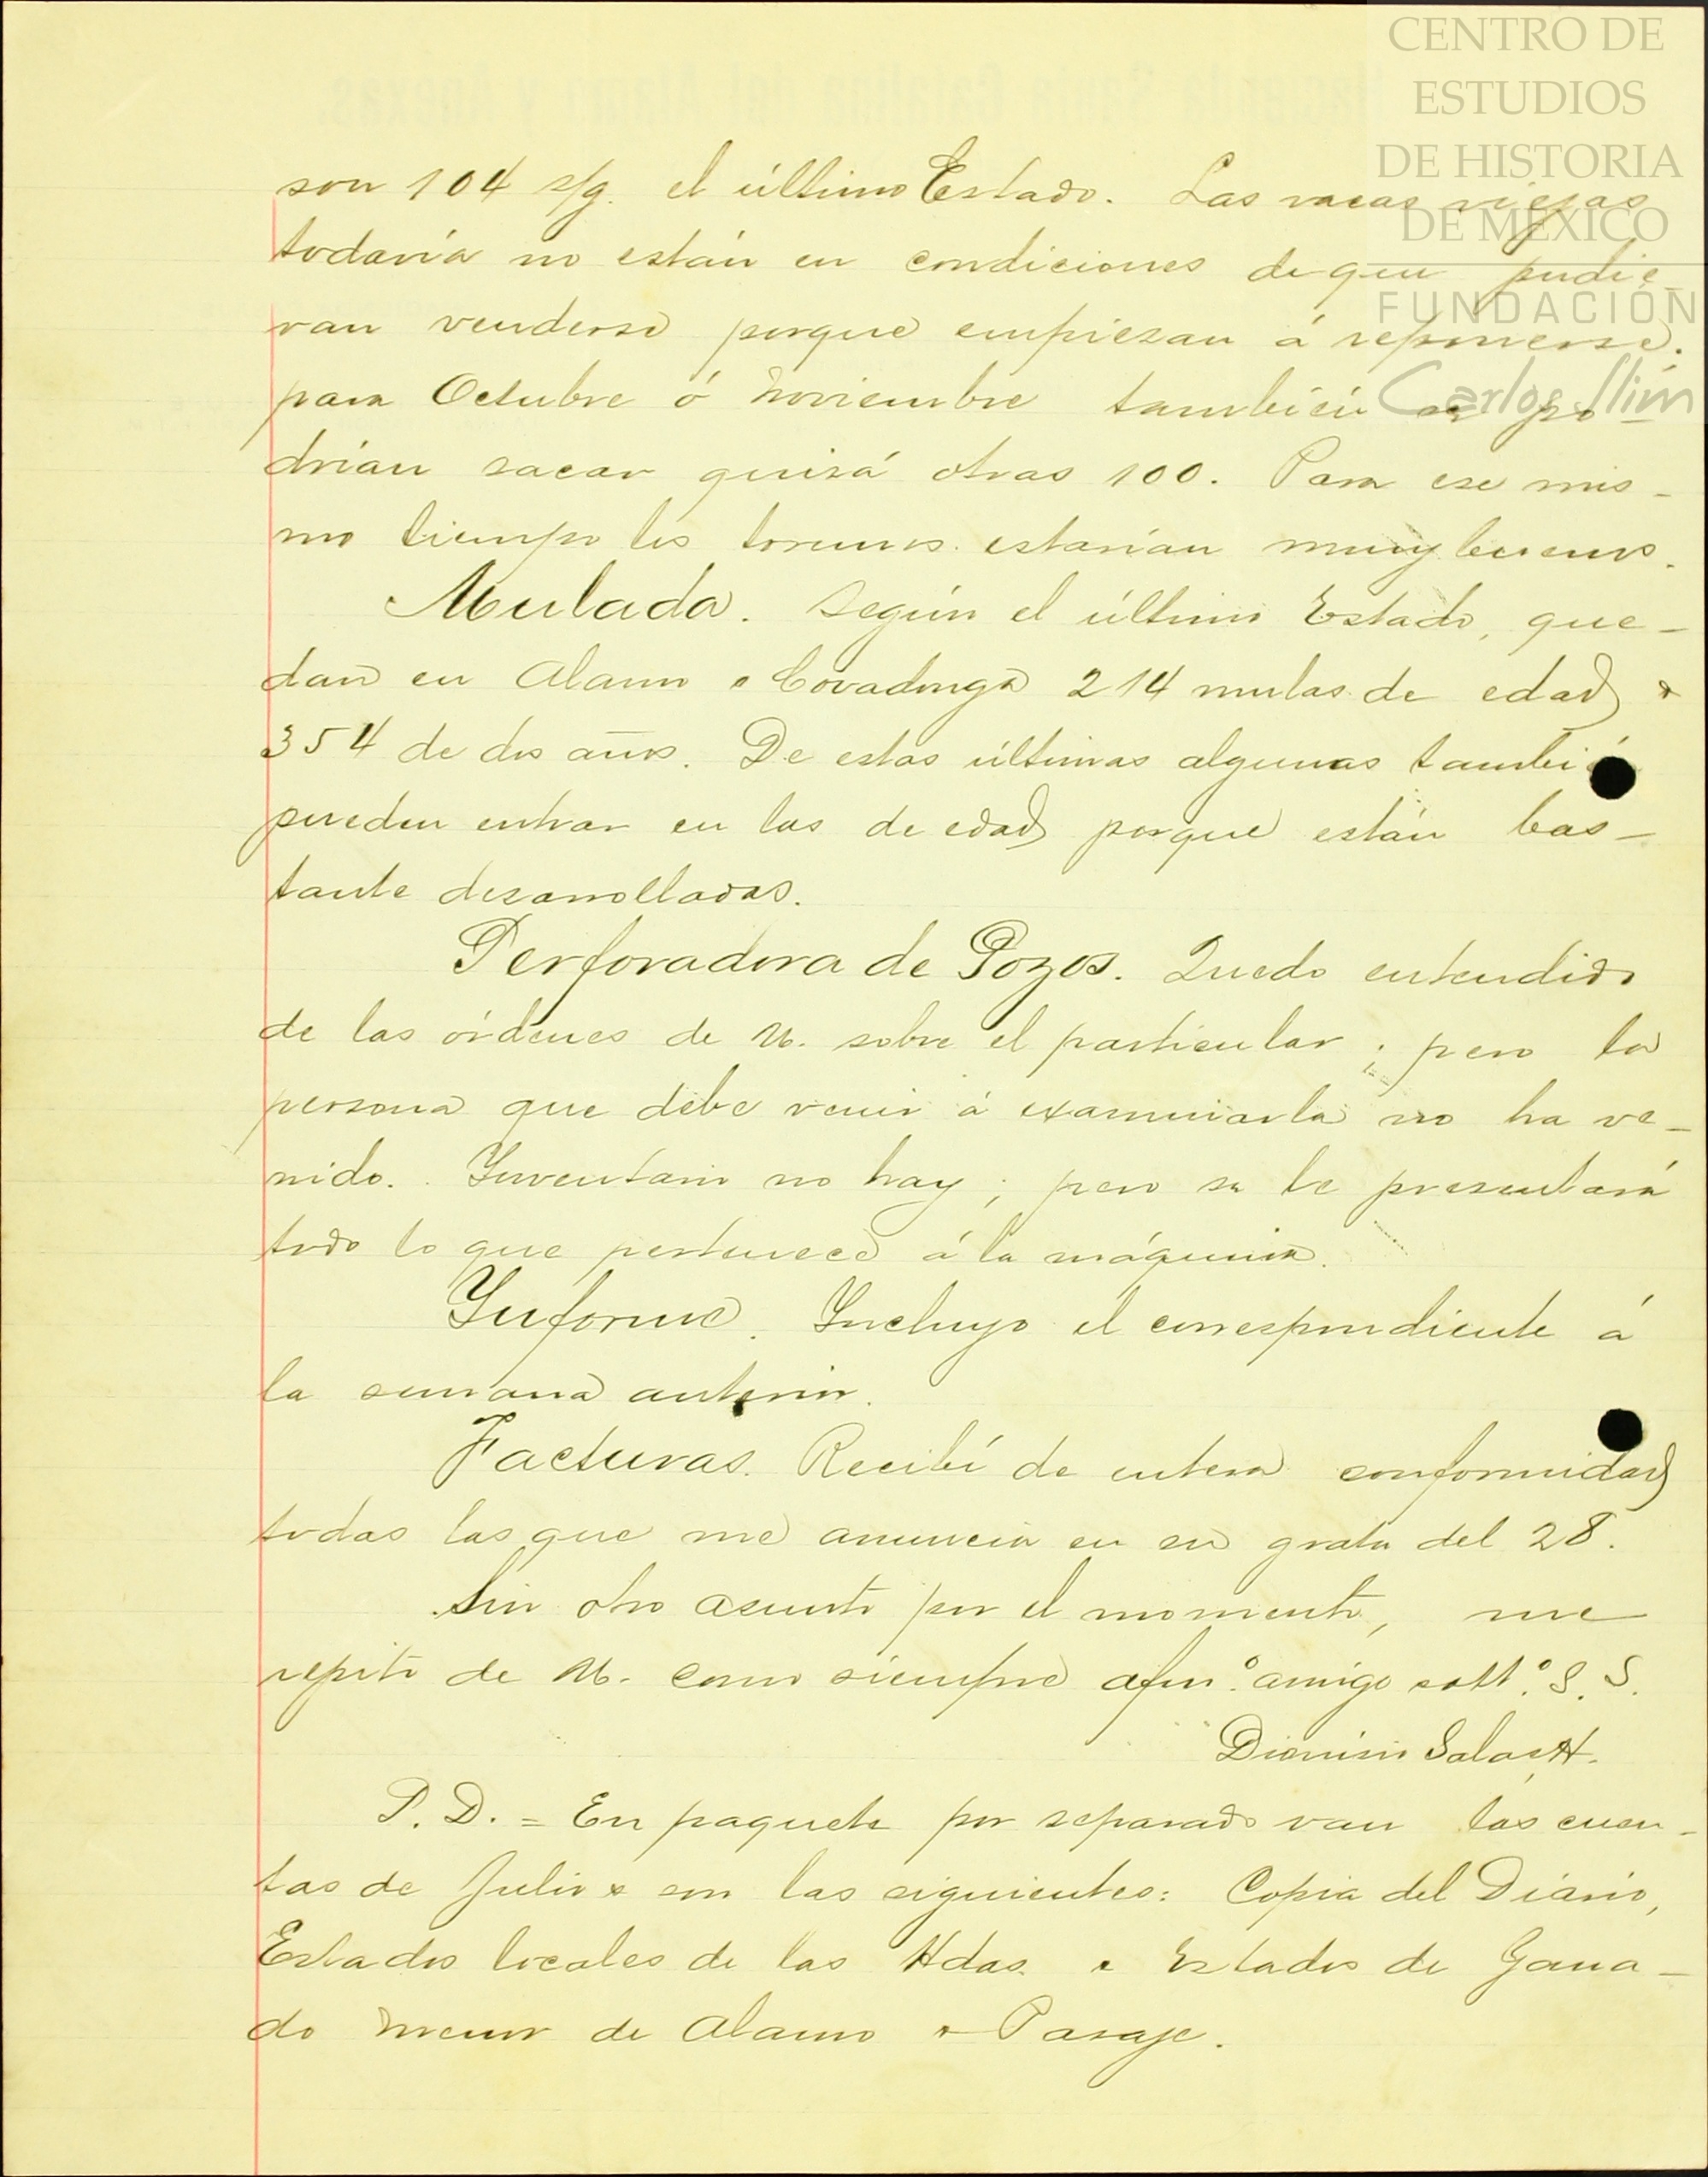 CENTRO DE
ESTUDIOS
DE HISTORIA
DE MÉXICO
FUNDACIÓN
Carlos Slim
son 104 s/g. el último Estado. Las vacas viejas
todavía no están en condiciones de que pudie-
ran venderse porque empiezan á reponerse.
para Octubre ó Noviembre también se po
drían sacar quizá otras 100. Para ese mis-
mo tiempo los torunos estarían muy buenos.
Mulada. Según el último Estado, que-
dan en Alamo & Covadonga 214 mulas de edad &
354 de dos años. De estas últimas algunas tambié
pueden entrar en las de edad porque están bas-
tante desarrolladas.
Perforadora de Pozos. Quedo entendido
de las órdenes de U. sobre el particular; pero la
persona que debe venir á examinarla no ha ve-
nido. Inventario no hay; pero se le presentará
todo lo que pertenece á la máquina.
Informe. Incluyo el correspondiente á
la semana anterior.
Facturas. Recibí de entera conformidad
todas las que me anuncia en su grata del 28.
Sin otro asunto por el momento, me
repito de U. como siempre afmº. amigo attº. S. S.
Dionisio Salas H.
P. D. = En paquete por separado van las cuen-
tas de Julio & son las siguientes: Copia del Diario,
Estados locales de las Hdas. & Estados de Gana-
do menor de Alamo & Pasaje.